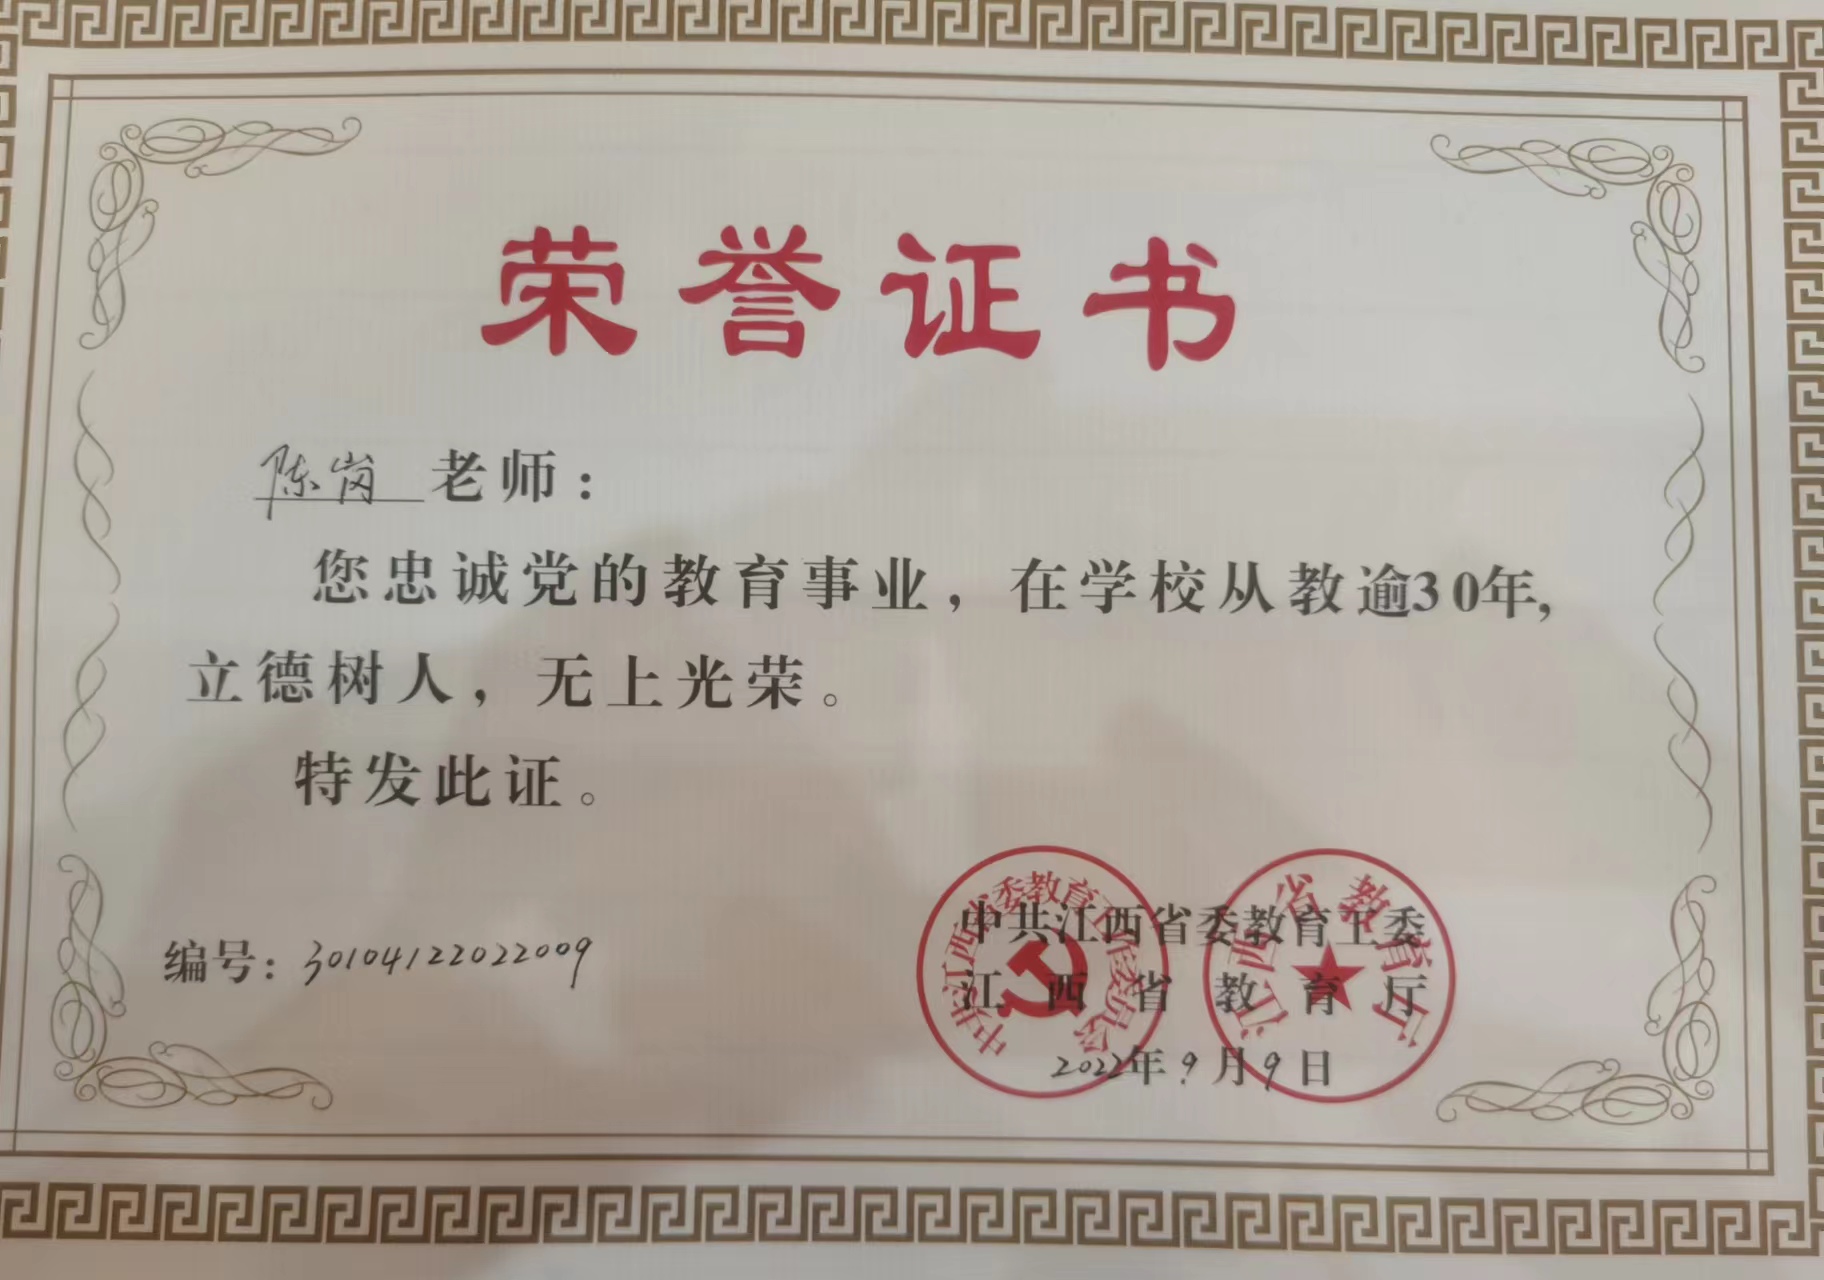 荣誉证书
陈岗老师：
您忠诚党的教育事业，在学校从教逾30年，
立德树人，无上光荣。
特发此证。
编号：30104122022009
中共江西省委教育工委
江西省教育厅
2022年9月9日
中共江西省委教育工作委员会
江西省教育厅